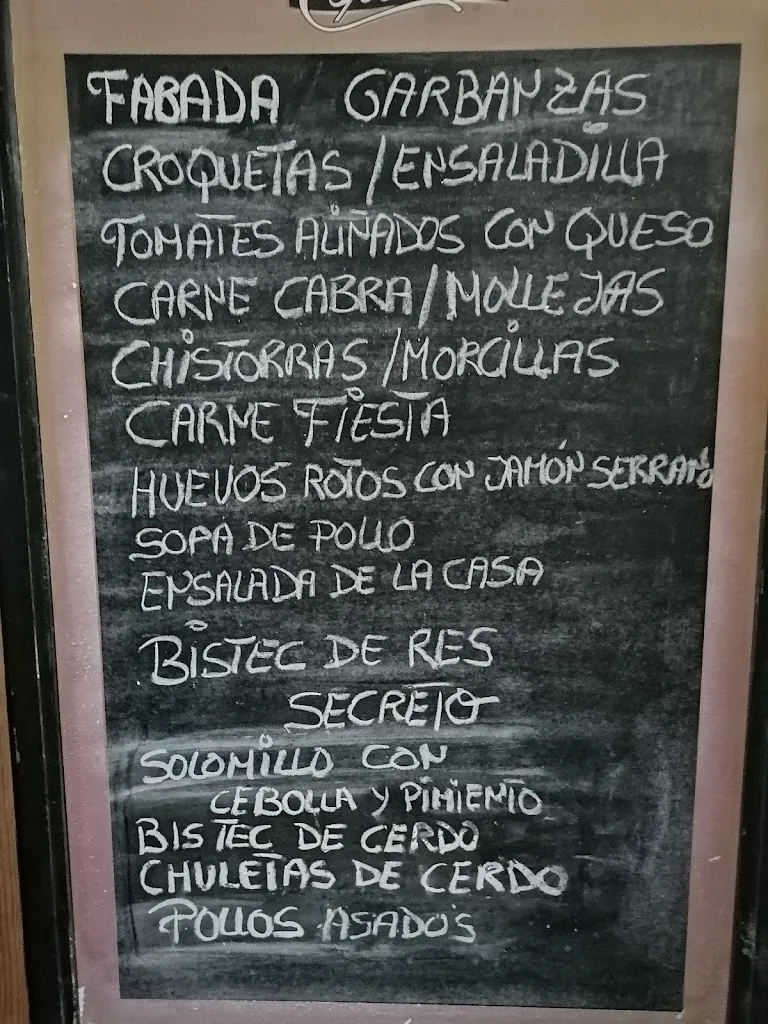 FABADA GARBANZAS
CROQUETAS / ENSALADILLA
TOMATES ALIÑADOS CON QUESO
CARNE CABRA / MOLLEJAS
CHISTORRAS / MORCILLAS
CARNE FIESTA
HUEVOS ROTOS CON JAMÓN SERRANO
SOPA DE POLLO
ENSALADA DE LA CASA
BISTEC DE RES
SECRETO
SOLOMILLO CON
CEBOLLA Y PIMIENTO
BISTEC DE CERDO
CHULETAS DE CERDO
POLLOS ASADOS